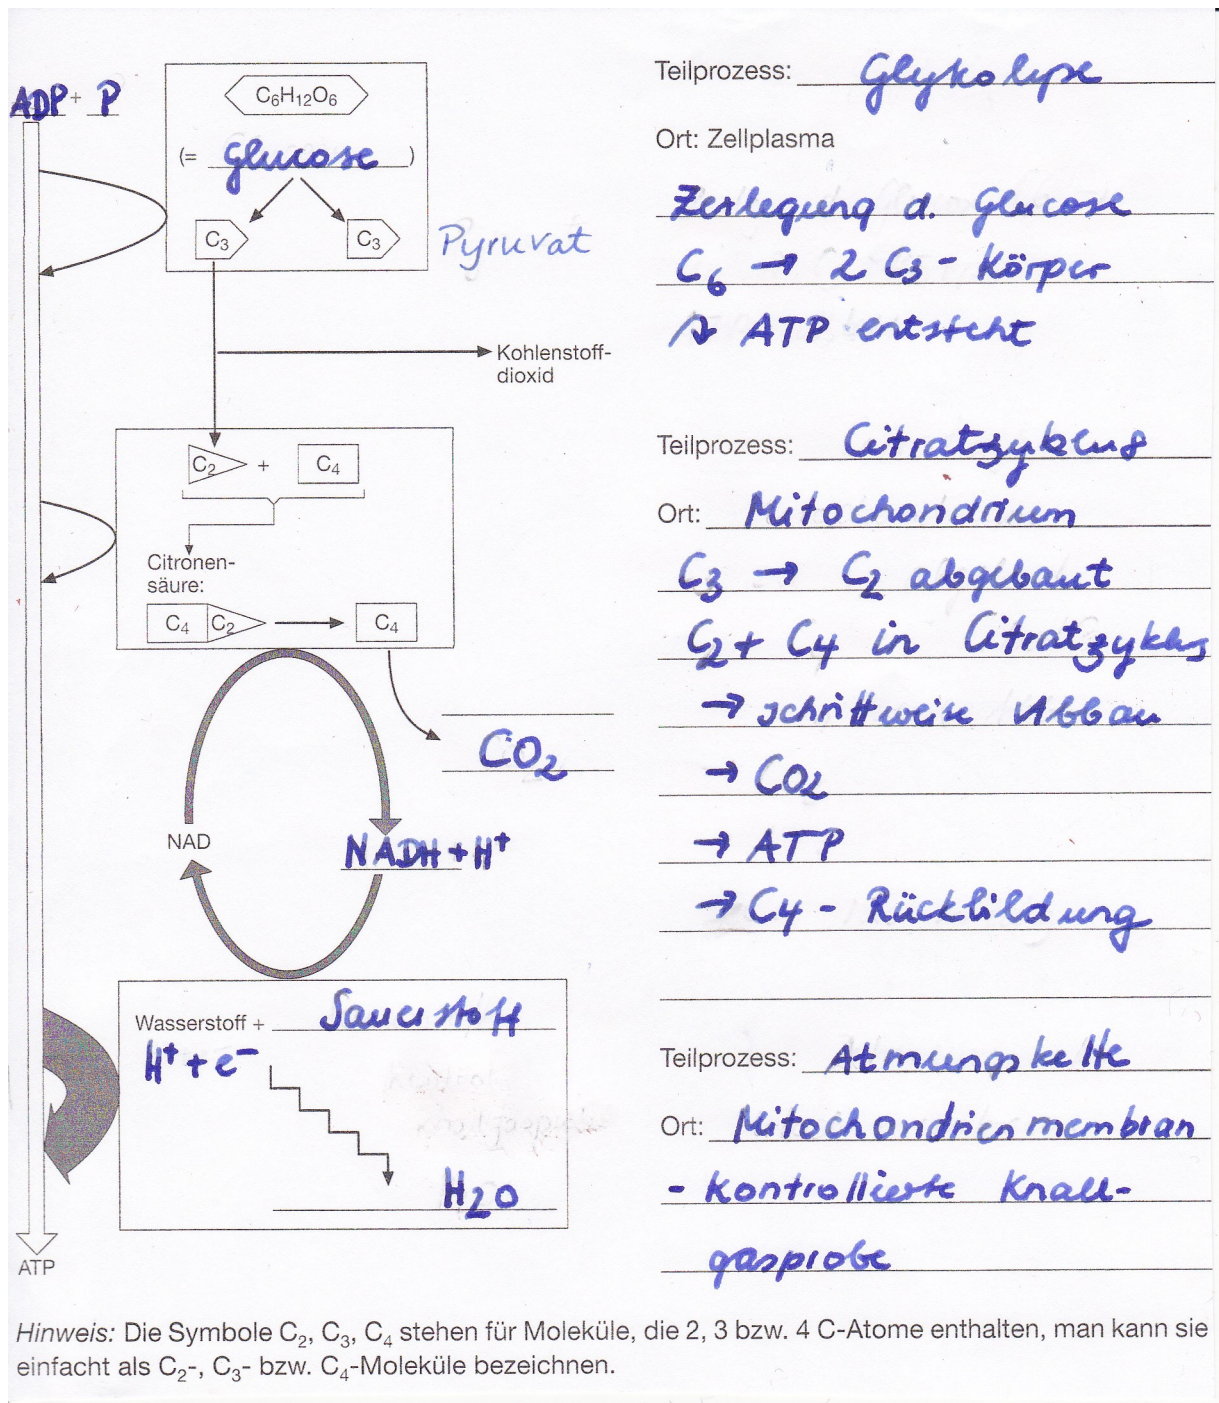 ADP + P
C6H12O6
(= Glucose )
C3 C3 Pyruvat
Kohlenstoff-
dioxid
C2 + C4
Citronen-
säure:
C4 C2 C4
CO2
NAD
NADH + H+
Wasserstoff + Sauerstoff
H+ + e−
H2O
ATP
Teilprozess: Glykolyse
Ort: Zellplasma
Zerlegung d. Glucose
C6 → 2 C3 - Körper
↳ ATP entsteht
Teilprozess: Citratzyklus
Ort: Mitochondrium
C3 → C2 abgebaut
C2 + C4 in Citratzyklus
→ schrittweise Abbau
→ CO2
→ ATP
→ C4 - Rückbildung
Teilprozess: Atmungskette
Ort: Mitochondrienmembran
- kontrollierte Knall-
gasprobe
Hinweis: Die Symbole C2, C3, C4 stehen für Moleküle, die 2, 3 bzw. 4 C-Atome enthalten, man kann sie
einfacht als C2-, C3- bzw. C4-Moleküle bezeichnen.